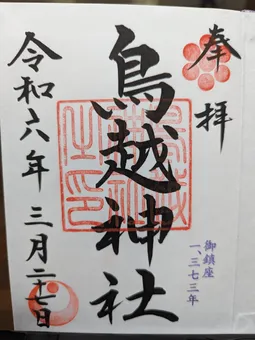 奉拝
御鎮座
一、三七三年
鳥越神社
令和六年三月二十七日